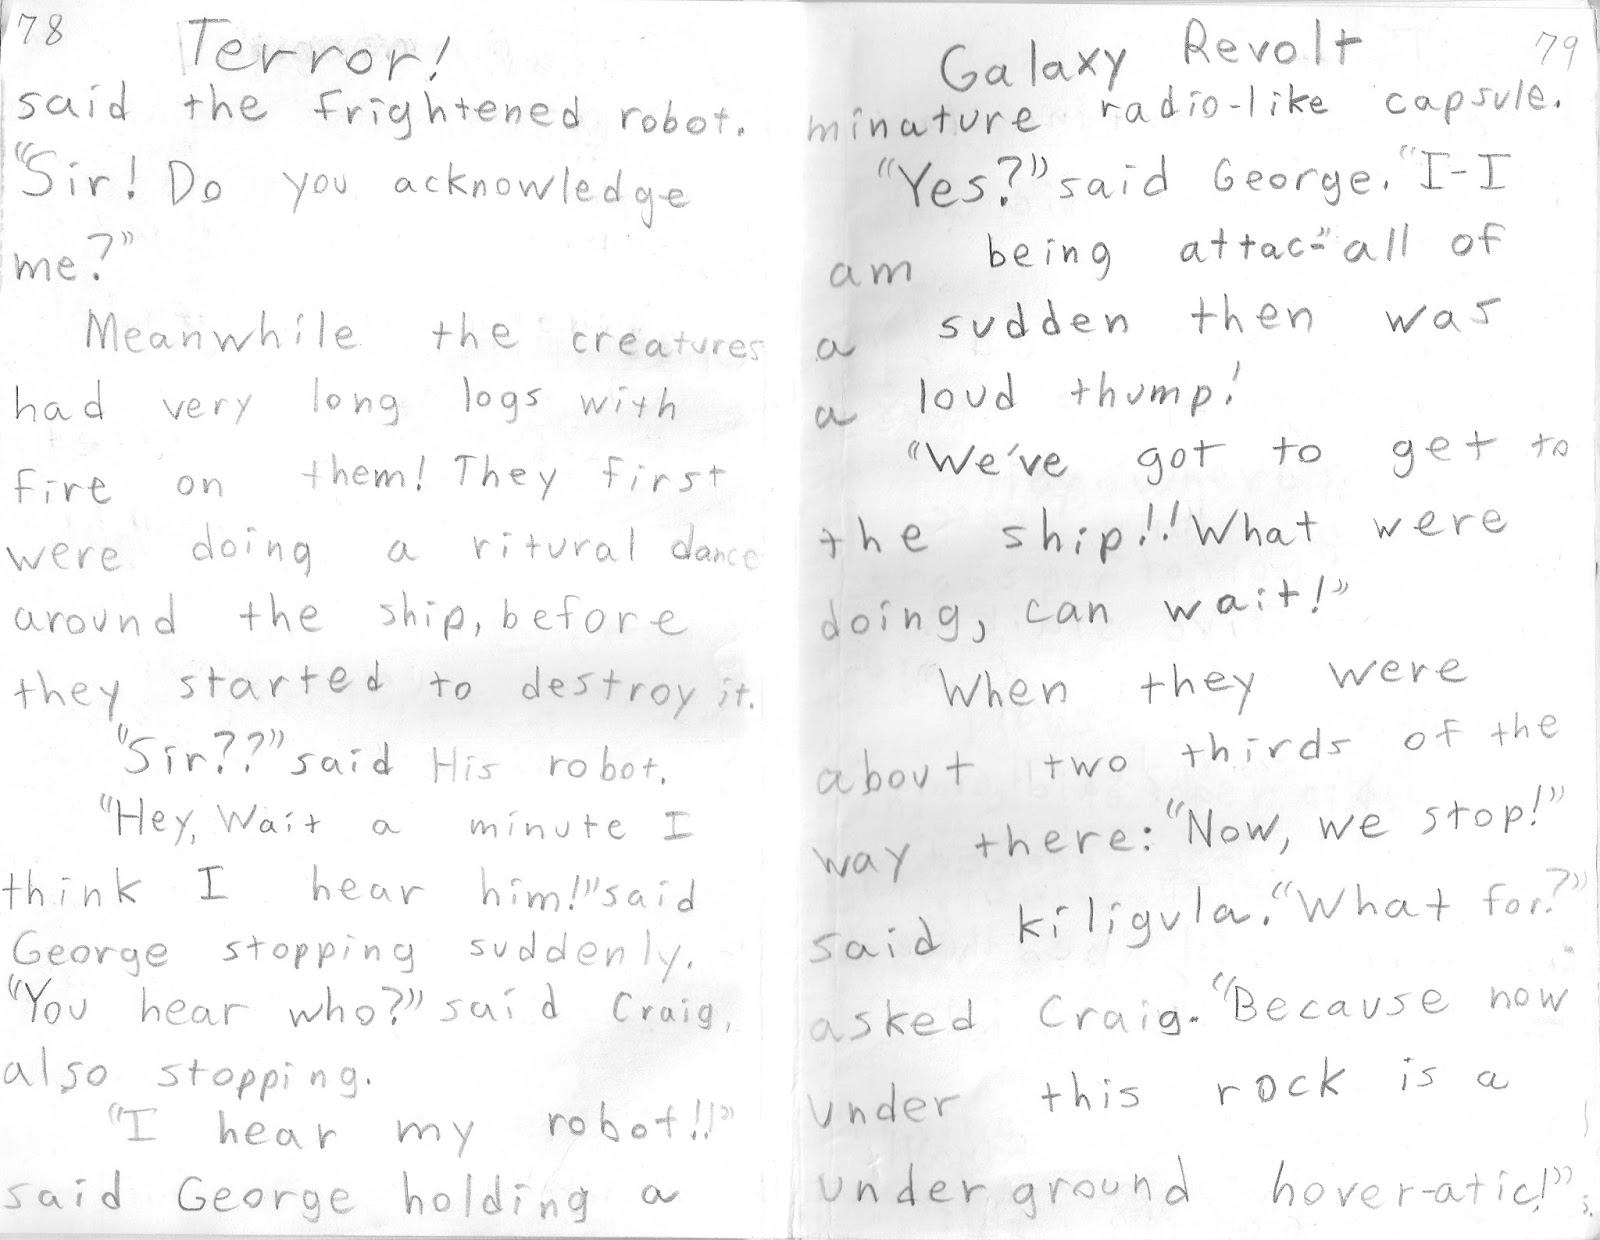 78
Terror!
said the frightened robot.
"Sir! Do you acknowledge
me?"
Meanwhile the creatures
had very long logs with
fire on them! They first
were doing a ritural dance
around the ship, before
they started to destroy it.
"Sir??" said His robot.
"Hey, Wait a minute I
think I hear him!" said
George stopping suddenly.
"You hear who?" said Craig,
also stopping.
"I hear my robot!!"
said George holding a
Galaxy Revolt
79
minature radio-like capsule.
"Yes?" said George. "I-I
am being attac-" all of
a sudden then was
a loud thump!
"We've got to get to
the ship!! What were
doing, can wait!"
When they were
about two thirds of the
way there: "Now, we stop!"
said kiligula. "What for?"
asked Craig. "Because now
under this rock is a
underground hover-atic!"